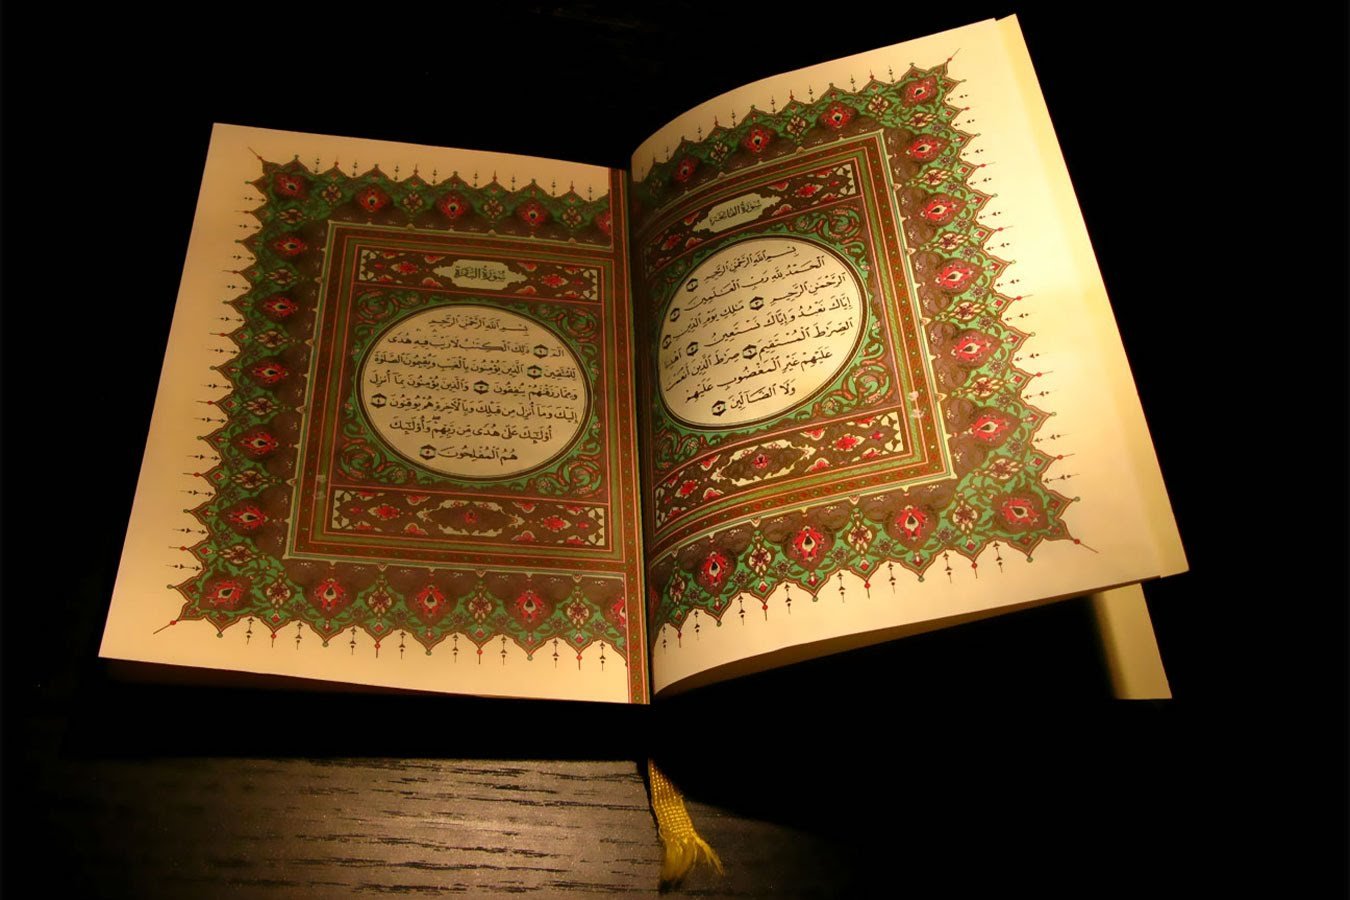 سُورَةُ الفَاتِحَةِ
بِسْمِ اللَّهِ الرَّحْمَٰنِ الرَّحِيمِ ۝١
الْحَمْدُ لِلَّهِ رَبِّ الْعَالَمِينَ ۝٢
الرَّحْمَٰنِ الرَّحِيمِ ۝٣ مَالِكِ يَوْمِ الدِّينِ ۝٤
إِيَّاكَ نَعْبُدُ وَإِيَّاكَ نَسْتَعِينُ ۝٥ اهْدِنَا
الصِّرَاطَ الْمُسْتَقِيمَ ۝٦ صِرَاطَ الَّذِينَ أَنْعَمْتَ
عَلَيْهِمْ غَيْرِ الْمَغْضُوبِ عَلَيْهِمْ
وَلَا الضَّالِّينَ ۝٧
سُورَةُ البَقَرَةِ
بِسْمِ اللَّهِ الرَّحْمَٰنِ الرَّحِيمِ
الم ۝١ ذَٰلِكَ الْكِتَابُ لَا رَيْبَ فِيهِ هُدًى
لِلْمُتَّقِينَ ۝٢ الَّذِينَ يُؤْمِنُونَ بِالْغَيْبِ وَيُقِيمُونَ الصَّلَوٰةَ
وَمِمَّا رَزَقْنَاهُمْ يُنْفِقُونَ ۝٣ وَالَّذِينَ يُؤْمِنُونَ بِمَا أُنْزِلَ
إِلَيْكَ وَمَا أُنْزِلَ مِنْ قَبْلِكَ وَبِالْآخِرَةِ هُمْ يُوقِنُونَ ۝٤
أُولَٰئِكَ عَلَىٰ هُدًى مِنْ رَبِّهِمْ وَأُولَٰئِكَ
هُمُ الْمُفْلِحُونَ ۝٥